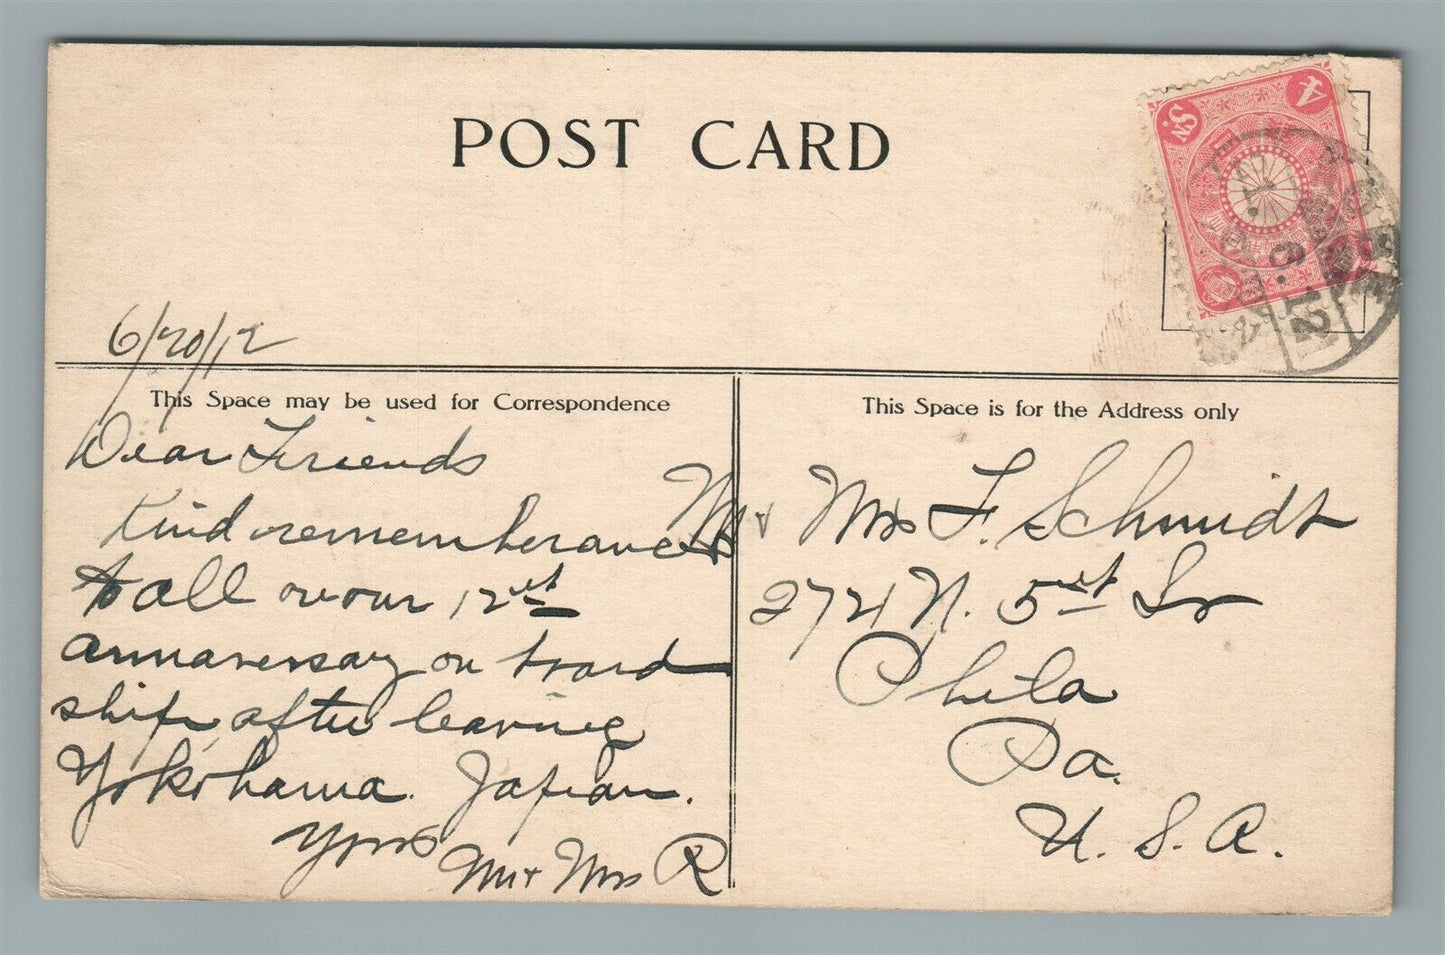 POST CARD
4
Sn.
6/20/12
This Space may be used for Correspondence
Dear Friends
Kind rememberances
to all on our 12st
annaversay on board
ship, after leaving
Yokohama. Japan.
Yours
Mr + Mrs R
This Space is for the Address only
Mr + Mrs F. Schmidt
2721 N. 5st St
Phila
Pa.
U. S. A.